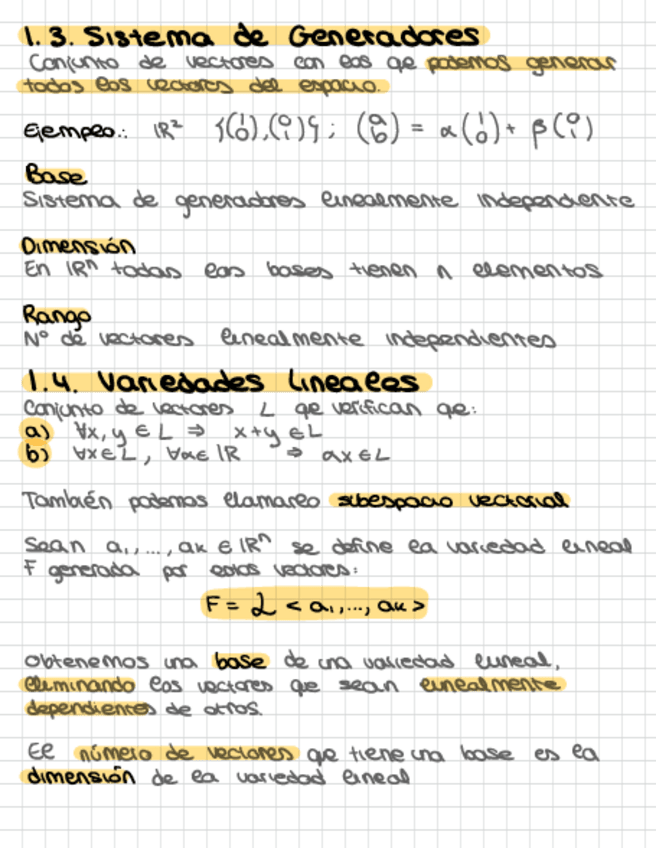 1.3. Sistema de Generadores
Conjunto de vectores con los qe podemos generar
todos los vectores del espacio.
Ejemplo.: IR² {(1 0),(0 1)}; (a b) = α(1 0) + β(0 1)
Base
Sistema de generadores linealmente independiente
Dimensión
En IRⁿ todas las bases tienen n elementos
Rango
Nº de vectores linealmente independientes
1.4. Variedades Lineales
Conjunto de vectores L qe verifican qe:
a) ∀x, y ∈ L ⇒ x+y ∈ L
b) ∀x ∈ L, ∀α ∈ IR ⇒ αx ∈ L
También podemos llamarlo subespacio vectorial
Sean a₁,..., aₖ ∈ IRⁿ se define la variedad lineal
F generada por estos vectores:
F = L < a₁,..., aₖ >
Obtenemos una base de una variedad lineal,
eliminando los vectores qe sean linealmente
dependientes de otros.
El número de vectores qe tiene una base es la
dimensión de la variedad lineal